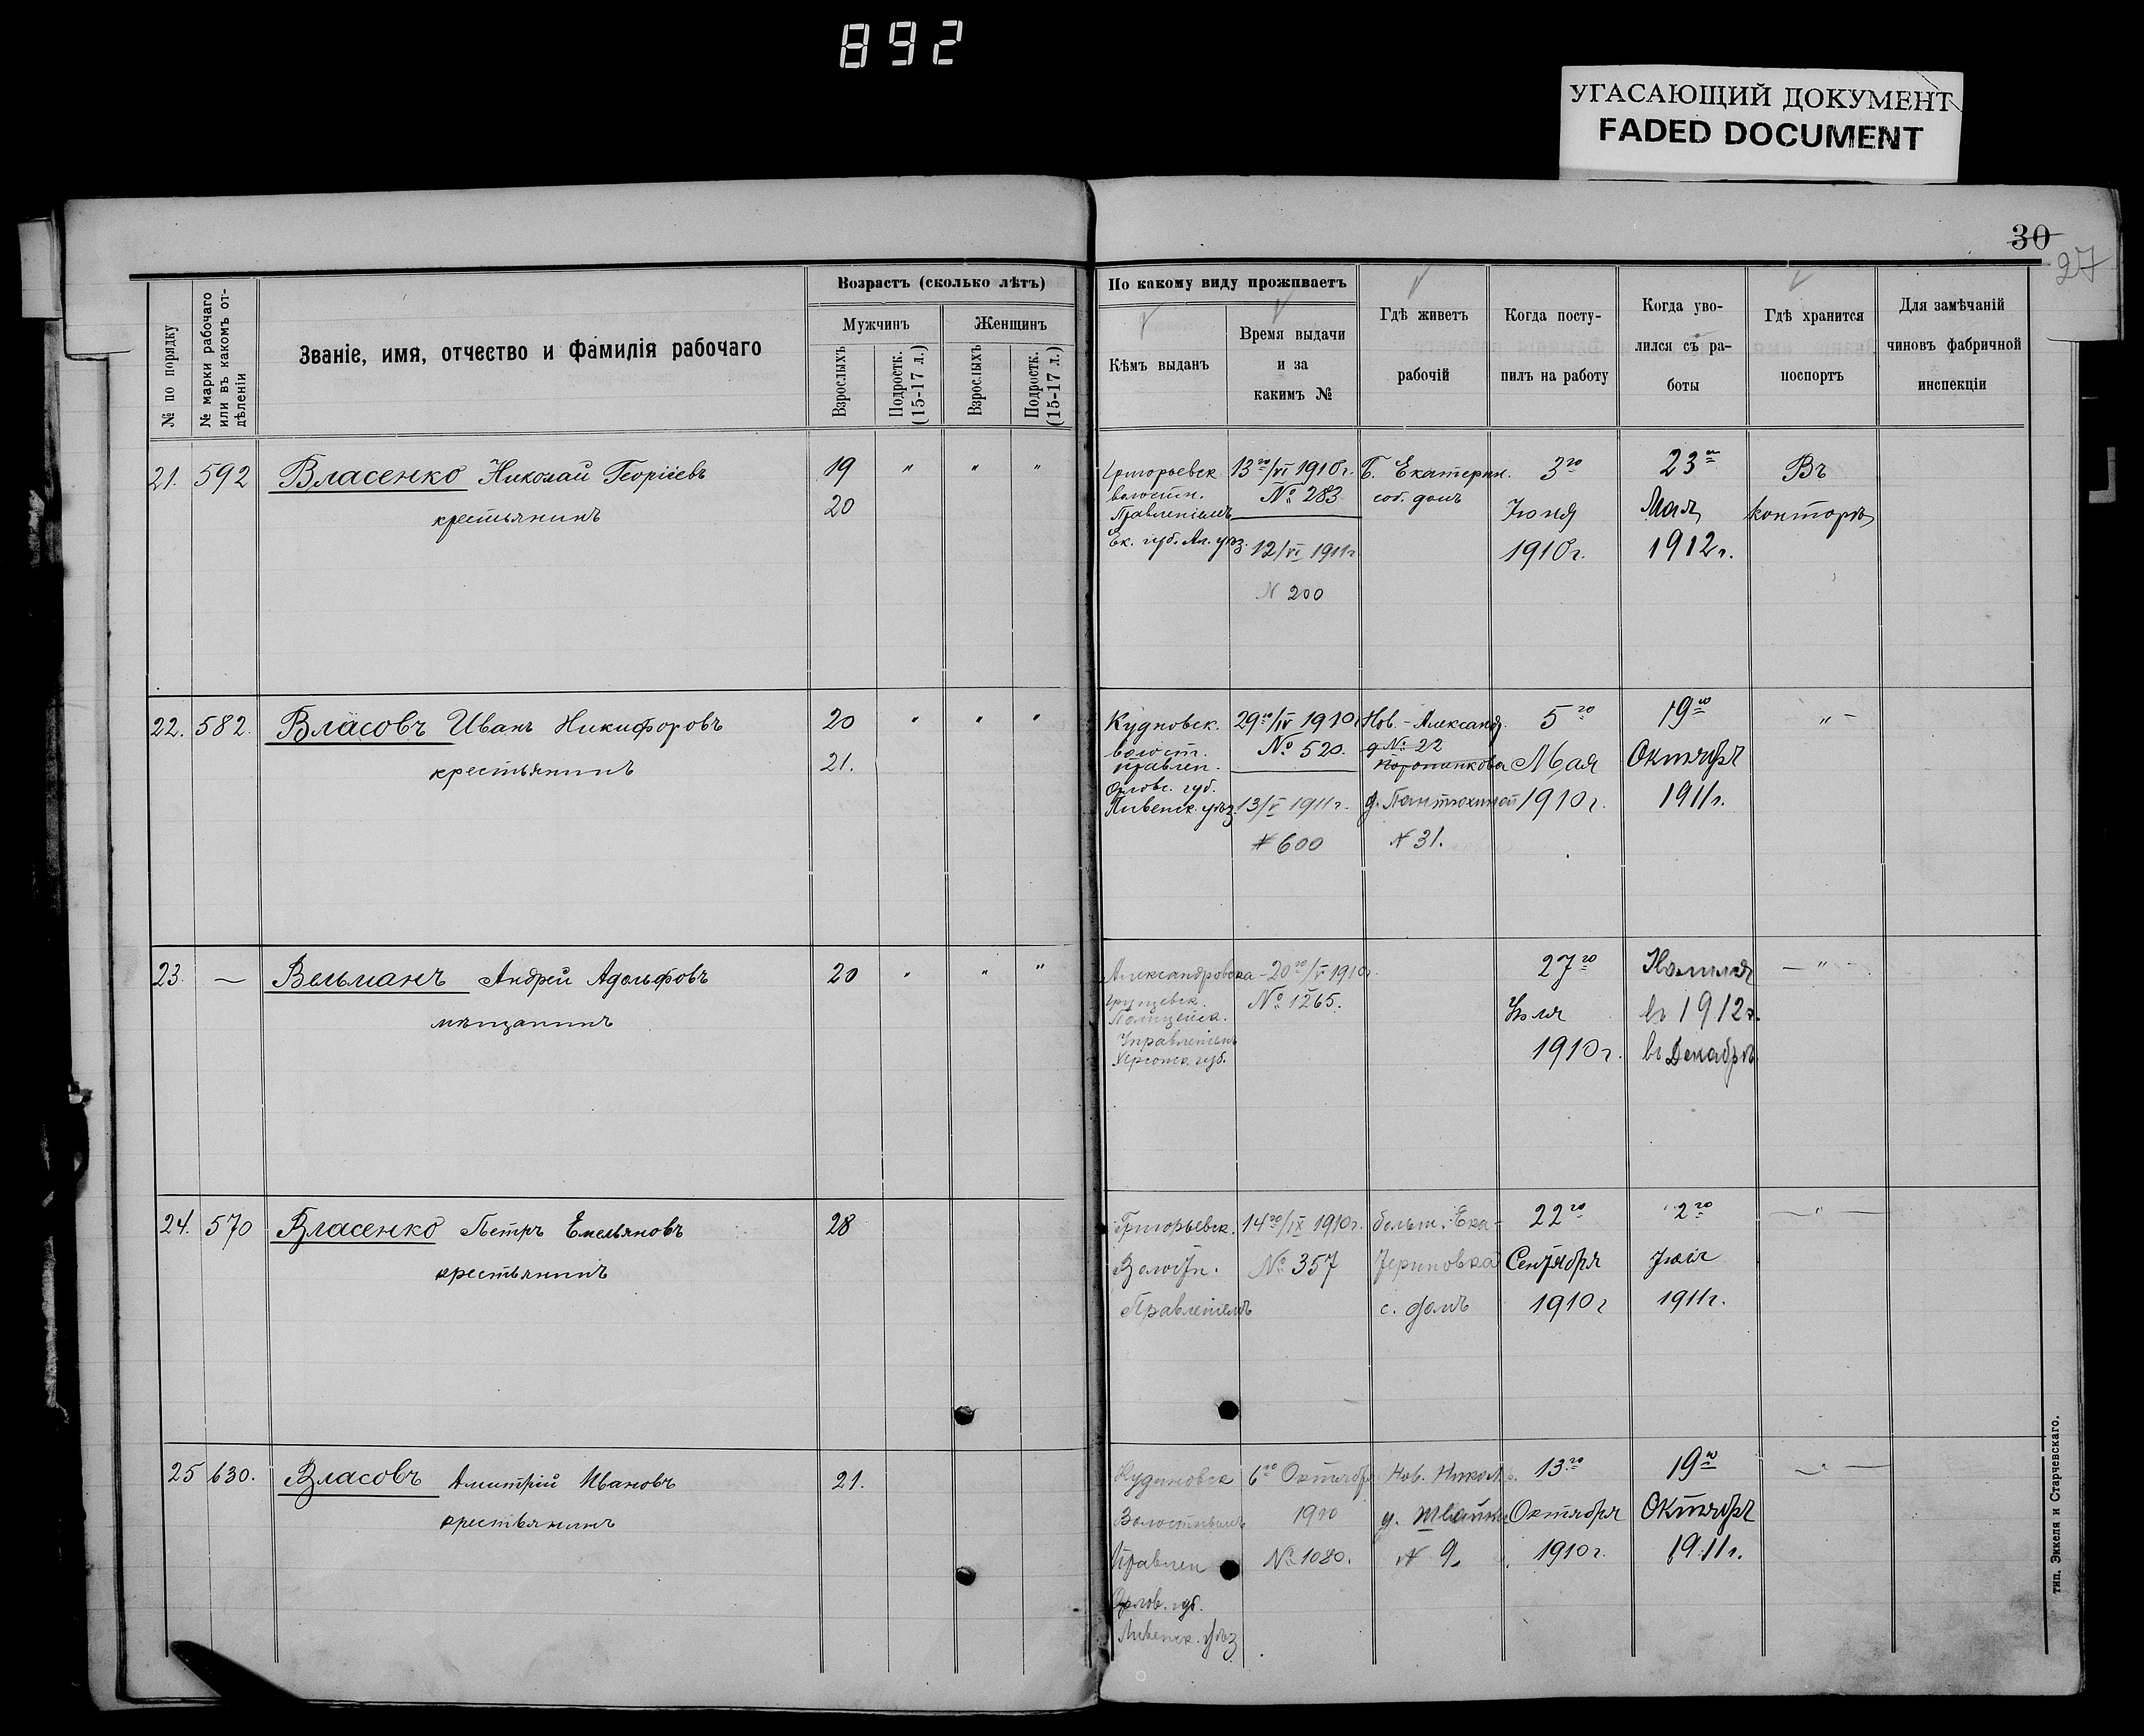 892
УГАСАЮЩИЙ ДОКУМЕНТ
FADED DOCUMENT
30
27
№ по порядку
№ марки рабочаго
или въ какомъ от-
дѣленіи
Званіе, имя, отчество и фамилія рабочаго
Возрастъ (сколько лѣтъ)
Мужчинъ
Женщинъ
Взрослыхъ
Подростк.
(15-17 л.)
Взрослыхъ
Подростк.
(15-17 л.)
По какому виду проживаетъ
Кѣмъ выданъ
Время выдачи
и за
какимъ №
Гдѣ живетъ
рабочій
Когда посту-
пилъ на работу
Когда уво-
лился съ ра-
боты
Гдѣ хранится
поспортъ
Для замѣчаній
чиновъ фабричной
инспекціи
21. 592 Власенко Николай Георгіевъ
крестьянинъ
19 " " "
20
Григорьевск.
волостн.
Правленіемъ
Ек. губ. Ал. уѣз.
13го/VI 1910г.
№ 283
12/VI 1911г
N 200
Б. Екатерин.
соб. домъ
3го
Іюня
1910г.
23го
Мая
1912г.
Въ
конторѣ
22. 582. Власовъ Иванъ Никифоровъ
крестьянинъ
20 " " "
21.
Кудиновск.
волост.
правлен.
Орловс. губ.
Ливенск. уѣз.
29го/IV 1910г
№ 520.
13/V 1911г.
# 600
Нов.-Александ.
д № 22
д. Пантюхиной
N 31.
5го
Мая
1910г.
19го
Октября
1911г.
" -
23. — Вельманъ Андрей Адольфовъ
мѣщанинъ
20 " " "
Александровска-
Полицейск.
Управленіемъ
Херсонск. губ.
20го/V 1910г.
№ 1265.
27го
Іюля
1910г.
въ 1912г.
въ Декабрѣ
— " -
24. 570 Власенко Петръ Емельяновъ
крестьянинъ
28
Григорьевск.
Волостн.
Правленіемъ
14го/IX 1910г.
№ 357
больш. Ека-
териновка
с. домъ
22го
Сентября
1910г
2го
1911г.
— " —
25 630. Власовъ Дмитрій Ивановъ
крестьянинъ
21.
Кудиновск
Волостнымъ
Правлен
Орлов. губ.
Ливенск. уѣз
6го Октября
1910
№ 1080.
Нов. Никол.
N 9.
13го
Октября
1910г.
19го
Октября
1911г.
— " —
тип. Эккеля и Старчевскаго.